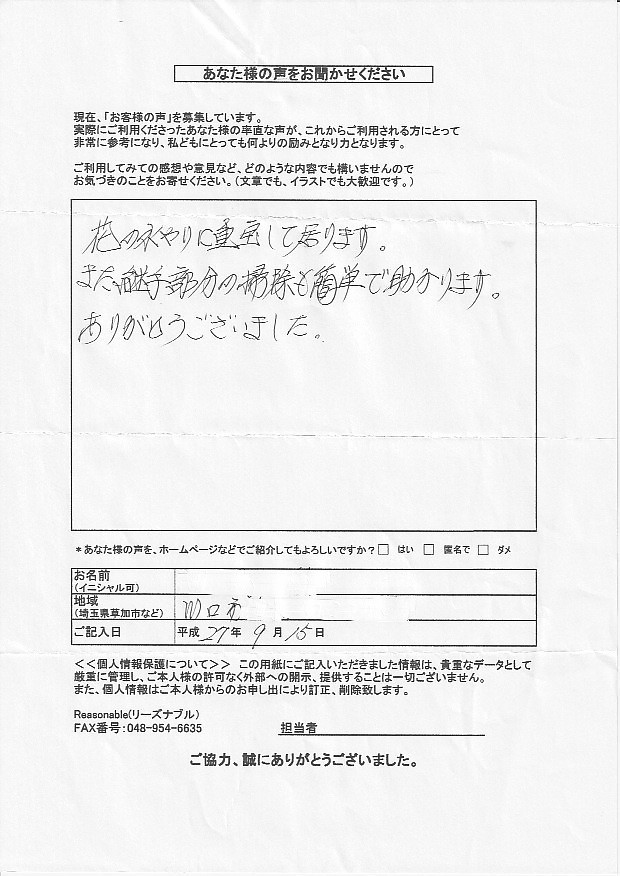 あなた様の声をお聞かせください
現在、「お客様の声」を募集しています。
実際にご利用くださったあなた様の率直な声が、これからご利用される方にとって
非常に参考になり、私どもにとっても何よりの励みとなり力となります。
ご利用してみての感想や意見など、どのような内容でも構いませんので
お気づきのことをお寄せください。(文章でも、イラストでも大歓迎です。)
花の水やりに重宝して居ります。
また、継手部分の掃除も簡単で助かります。
ありがとうございました。
*あなた様の声を、ホームページなどでご紹介してもよろしいですか?□ はい □ 匿名で □ ダメ
お名前
(イニシャル可)
地域
(埼玉県草加市など) 川口市
ご記入日 平成 27年 9月 15日
<<個人情報保護について>> この用紙にご記入いただきました情報は、貴重なデータとして
厳重に管理し、ご本人様の許可なく外部への開示、提供することは一切ございません。
また、個人情報はご本人様からのお申し出により訂正、削除致します。
Reasonable(リーズナブル)
FAX番号:048-954-6635 担当者
ご協力、誠にありがとうございました。